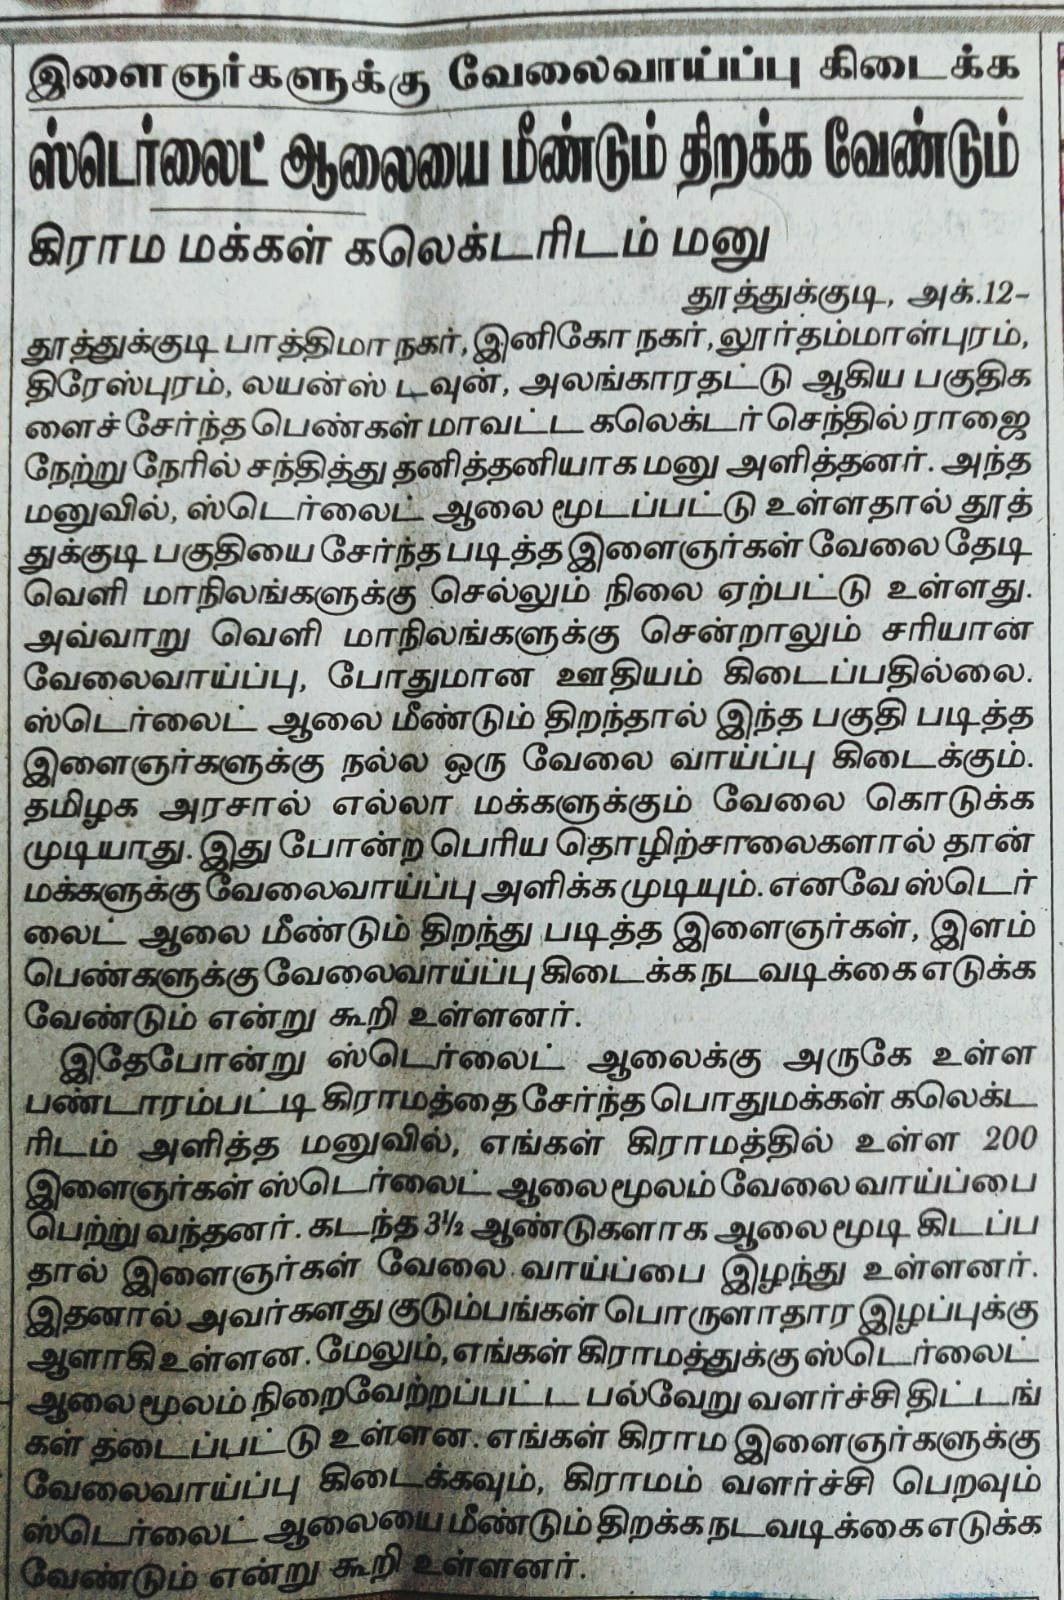 இளைஞர்களுக்கு வேலைவாய்ப்பு கிடைக்க
ஸ்டெர்லைட் ஆலையை மீண்டும் திறக்க வேண்டும்
கிராம மக்கள் கலெக்டரிடம் மனு
தூத்துக்குடி, அக்.12-
தூத்துக்குடி பாத்திமா நகர், இனிகோ நகர், லூர்தம்மாள்புரம்,
திரேஸ்புரம், லயன்ஸ் டவுன், அலங்காரதட்டு ஆகிய பகுதிக
ளைச் சேர்ந்த பெண்கள் மாவட்ட கலெக்டர் செந்தில் ராஜை
நேற்று நேரில் சந்தித்து தனித்தனியாக மனு அளித்தனர். அந்த
மனுவில், ஸ்டெர்லைட் ஆலை மூடப்பட்டு உள்ளதால் தூத்
துக்குடி பகுதியை சேர்ந்த படித்த இளைஞர்கள் வேலை தேடி
வெளி மாநிலங்களுக்கு செல்லும் நிலை ஏற்பட்டு உள்ளது.
அவ்வாறு வெளி மாநிலங்களுக்கு சென்றாலும் சரியான
வேலைவாய்ப்பு, போதுமான ஊதியம் கிடைப்பதில்லை.
ஸ்டெர்லைட் ஆலை மீண்டும் திறந்தால் இந்த பகுதி படித்த
இளைஞர்களுக்கு நல்ல ஒரு வேலை வாய்ப்பு கிடைக்கும்.
தமிழக அரசால் எல்லா மக்களுக்கும் வேலை கொடுக்க
முடியாது. இது போன்ற பெரிய தொழிற்சாலைகளால் தான்
மக்களுக்கு வேலைவாய்ப்பு அளிக்க முடியும். எனவே ஸ்டெர்
லைட் ஆலை மீண்டும் திறந்து படித்த இளைஞர்கள், இளம்
பெண்களுக்கு வேலைவாய்ப்பு கிடைக்க நடவடிக்கை எடுக்க
வேண்டும் என்று கூறி உள்ளனர்.
இதேபோன்று ஸ்டெர்லைட் ஆலைக்கு அருகே உள்ள
பண்டாரம்பட்டி கிராமத்தை சேர்ந்த பொதுமக்கள் கலெக்ட
ரிடம் அளித்த மனுவில், எங்கள் கிராமத்தில் உள்ள 200
இளைஞர்கள் ஸ்டெர்லைட் ஆலை மூலம் வேலை வாய்ப்பை
பெற்று வந்தனர். கடந்த 3½ ஆண்டுகளாக ஆலை மூடி கிடப்ப
தால் இளைஞர்கள் வேலை வாய்ப்பை இழந்து உள்ளனர்.
இதனால் அவர்களது குடும்பங்கள் பொருளாதார இழப்புக்கு
ஆளாகி உள்ளன. மேலும், எங்கள் கிராமத்துக்கு ஸ்டெர்லைட்
ஆலை மூலம் நிறைவேற்றப்பட்ட பல்வேறு வளர்ச்சி திட்டங்
கள் தடைப்பட்டு உள்ளன. எங்கள் கிராம இளைஞர்களுக்கு
வேலைவாய்ப்பு கிடைக்கவும், கிராமம் வளர்ச்சி பெறவும்
ஸ்டெர்லைட் ஆலையை மீண்டும் திறக்க நடவடிக்கை எடுக்க
வேண்டும் என்று கூறி உள்ளனர்.